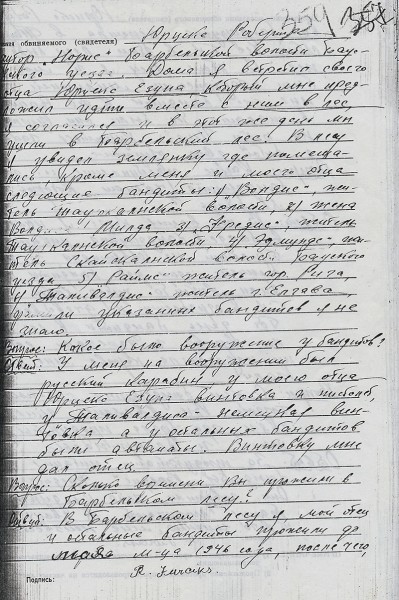 359 357
ния обвиняемого (свидетеля) Юруцкс Роберта
хутор „Норис" Барбельской волости Бауского уезда. Дома я встретил своего
отца Юруцкс Езупа, который мне предложил уйти вместе с ним в лес,
я согласился и в этот же день мы
ушли в Барбельский лес. В лесу
я увидел землянку где помещались, кроме меня и моего отца
следующие бандиты: 1) „Волдис", житель Таурка́лнской волости, 2) жена
Волдиса Милда 3) „Фредис", житель
Тауркалнской волости 4) „Эдмундс", житель Скайсткалнской волости Бауского
уезда 5) „Раймс" житель гор. Рига,
6) Таливалдис житель г. Елгава.
Фамилии указанных бандитов я не
знаю.
Вопрос: Какое было вооружение у бандитов?
Ответ: У меня на вооружении был
русский карабин у моего отца
Юруцкс Езупа винтовка и пистолет,
у Таливалдиса немецкая винтовка, а у остальных бандитов
были автоматы. Винтовку мне
дал отец.
Вопрос: Сколько времени Вы прожили в
Барбельском лесу?
Ответ: В Барбельском лесу я мой отец
и остальные бандиты прожили до
м-ца 1946 года, после чего,
Подпись: R.